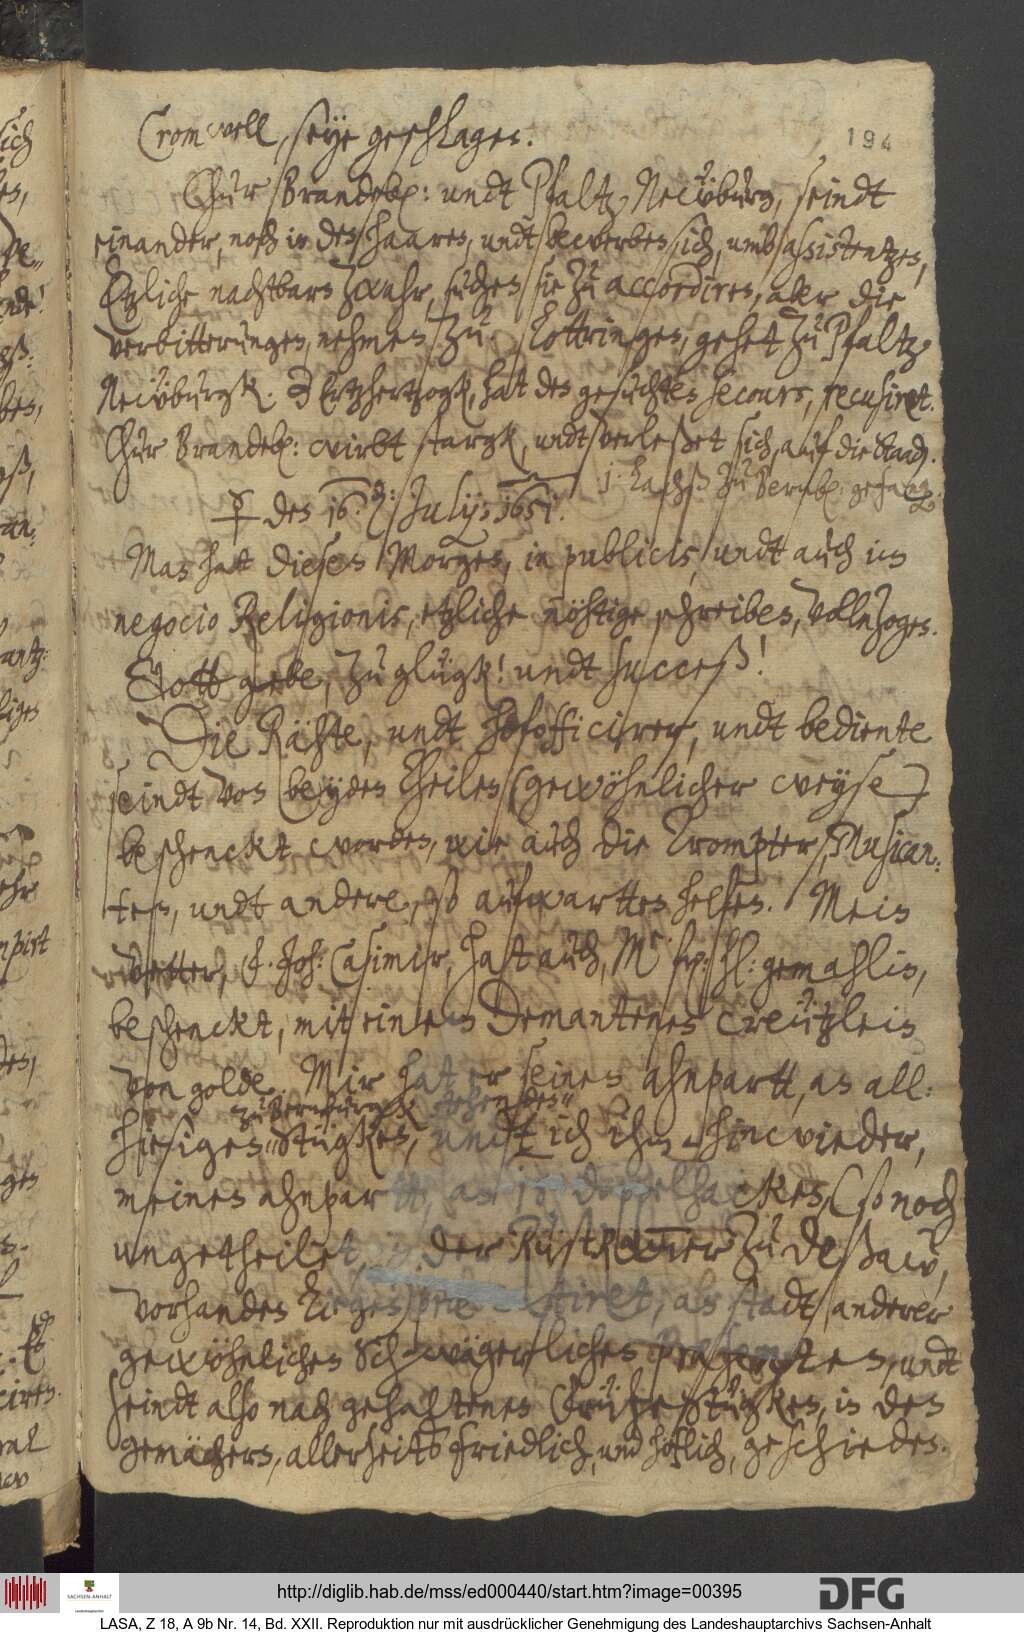 194
Cromwell, seye geschlagen.
Chur Brandeb: undt Pfaltz Neẅburg, seindt
einander, noch in den haaren, undt bewerben sich, umb assistentzen,
Etzliche nachtbarn zwahr, suchen sie zu accordiren, aber die
verbitterungen, nehmen zu. Lottringen, gehet zu Pfaltz
Neẅburgk. Der Ertzhertzogk, hat den gesuchten secours, recusiret.
Chur Brandeb: wirbt stargk, undt verleßet sich, auf die Staad.
1. Lachß zu Bernb: gefang
♀ den 18. July: 1651.
Man hat diesen Morgen, in publicis, undt auch im
negocio Religionis, etzliche nöhtige schreiben, vollnzogen.
Gott gebe, zu glügk! undt succeß!
Die Rähte, undt hofofficirer, undt bediente
seindt von beyden theilen (gewöhnlicher weyse)
beschenckt worden, wie auch die Trompter, Musican:
ten, undt andere, so aufwartten helfen. Mein
Vetter, F. Joh: Casimir, hat auch, Mr. frz: hl: gemahlin,
beschenckt, mit einem Demantenen creützlein
von golde. Mir hat er seinen ahnpartt, an all:
zu Bernburgk stehenden
hiesigen Stügken, undt ich ihm hinwieder,
meinen ahnpartt, an 18 doppelhacken, (so noch
ungetheilet, in der Rüstkammer zu Deßaw,
vorhanden liegen) præsentiret, an stadt anderer
gewöhnlichen Schwägerlichen Præsenten, undt
seindt also nach gehaltenen Frühestügken, in den
gemächern, allerseits friedlich, und höflich, geschieden.
http://diglib.hab.de/mss/ed000440/start.htm?image=00395
SACHSEN-ANHALT
DFG
LASA, Z 18, A 9b Nr. 14, Bd. XXII. Reproduktion nur mit ausdrücklicher Genehmigung des Landeshauptarchivs Sachsen-Anhalt